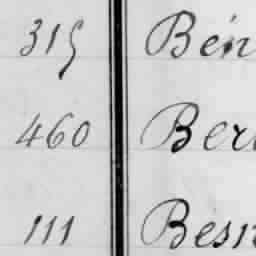 315 Bén
460 Ber
111 Besn